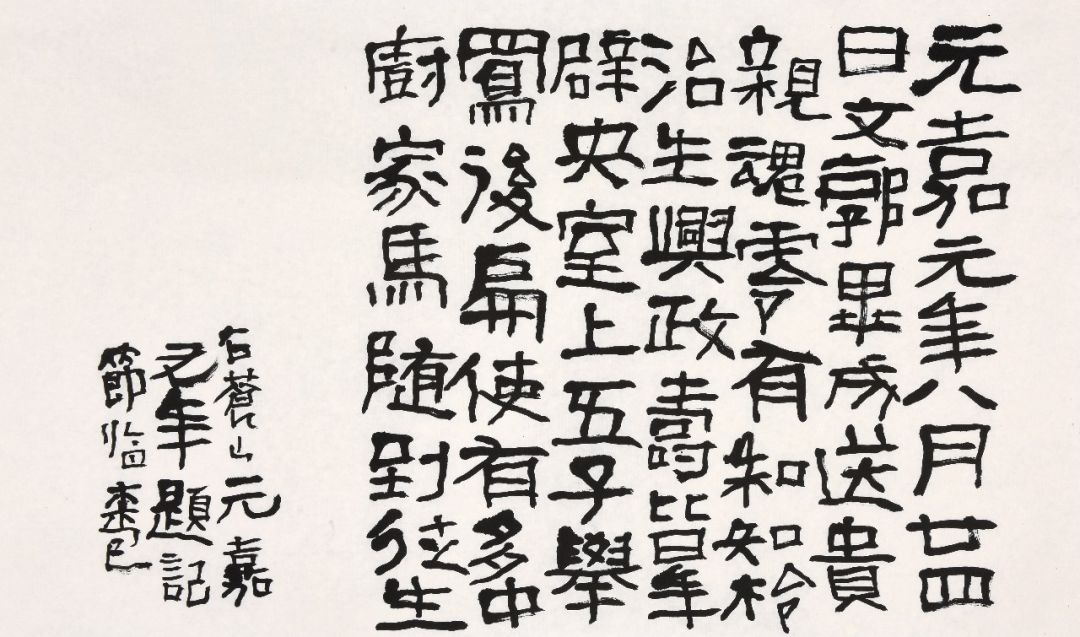 元嘉元年八月廿四
日文郭畢成送貴
親魂零有知知柃
治生興政壽皆年
辟央室上五子舉
後扁使有多中
廚家馬隨到往生
右蒼山元嘉
又年題記
節臨